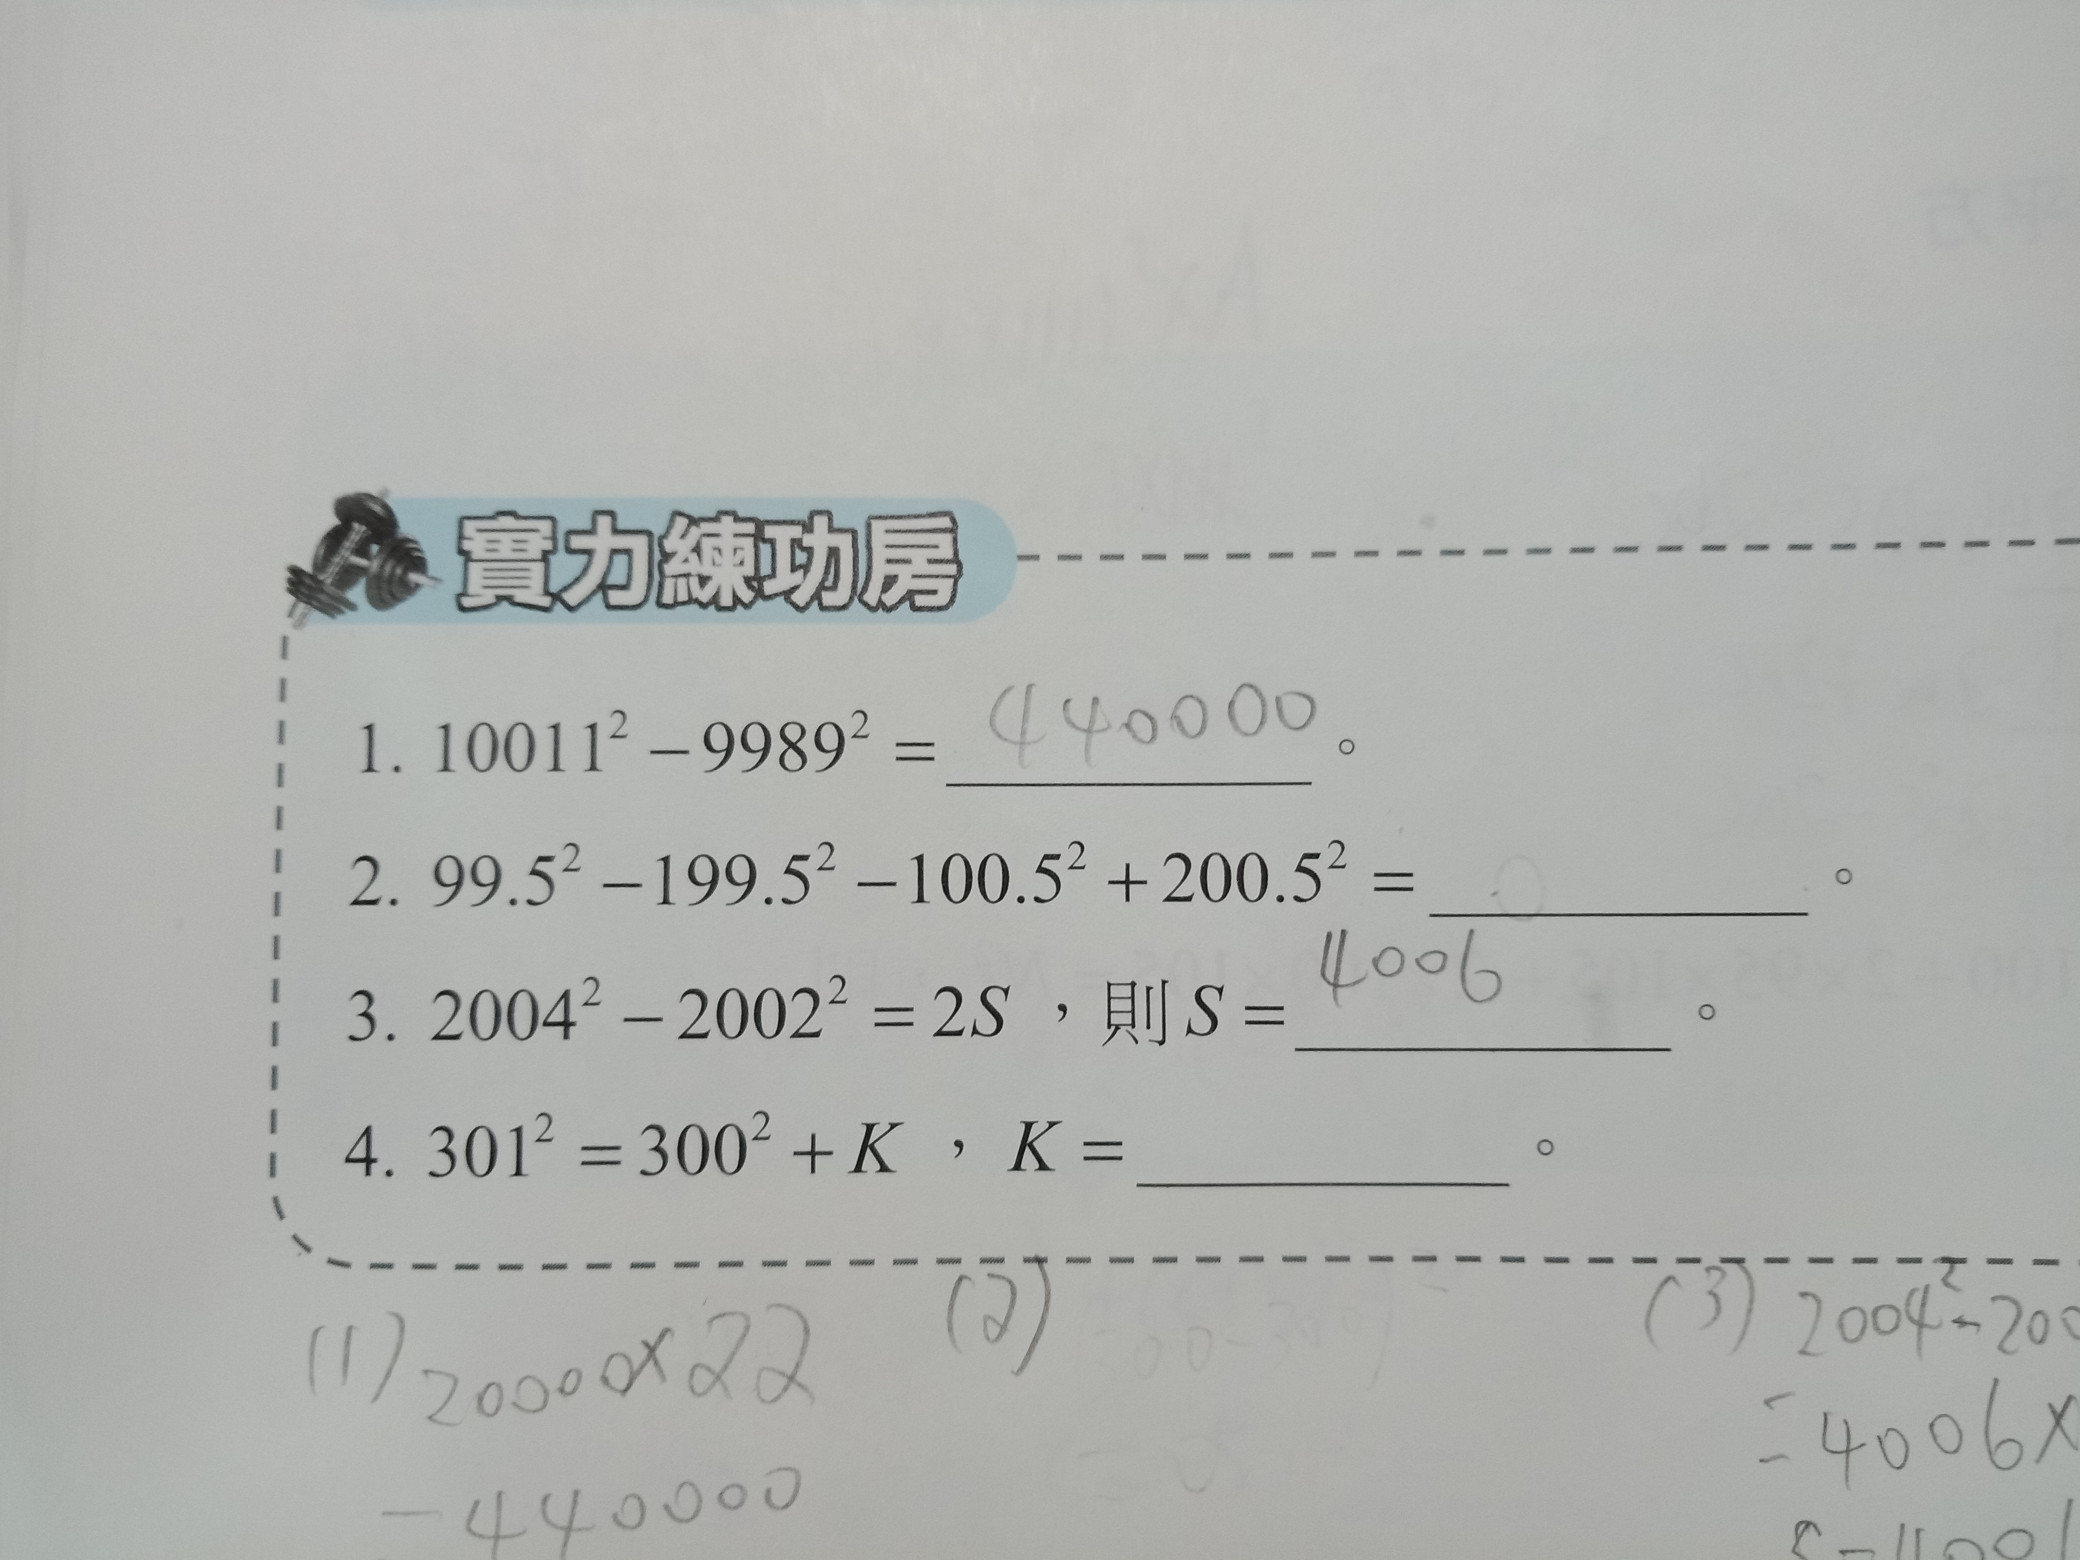 實力練功房
1. 10011² − 9989² = 440000 。
2. 99.5² − 199.5² − 100.5² + 200.5² = 0 。
3. 2004² − 2002² = 2S ，則 S = 4006 。
4. 301² = 300² + K ， K = 。
(1) 20000×22
(2)
(3) 2004²-200
= 4006×
-440000